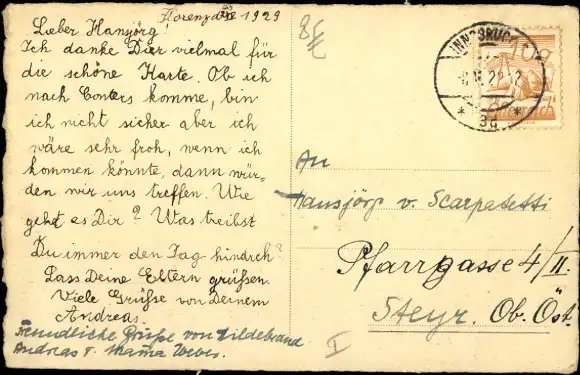 Florenz 1929
Lieber Hansjörg!
Ich danke Dier vielmal für
die schöne Karte. Ob ich
nach Conters komme, bin
ich nicht sicher aber ich
wäre sehr froh, wenn ich
kommen könnte, dann wür-
den wir uns treffen. Wie
geht es Dir? Was treibst
Du immer den Tag hindrch?
Lass Deine Eltern grüßen.
Viele Grüße von Deinem
Andreas.
Freundliche Grüße von Hildebrand
Andreas u. Mama
INNSBRUCK
* 3d *
10g
An
Hansjörg v. Scarpatetti
Pfarrgasse 4/II.
Steyr. Ob. Öst.
I